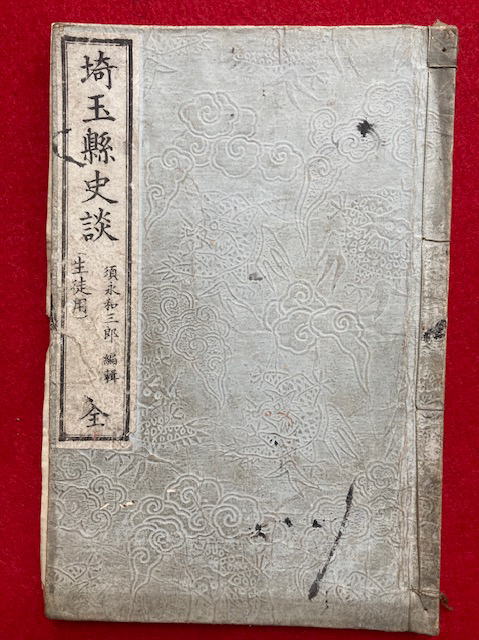 埼玉縣史談
須永和三郎 編輯
生徒用
全